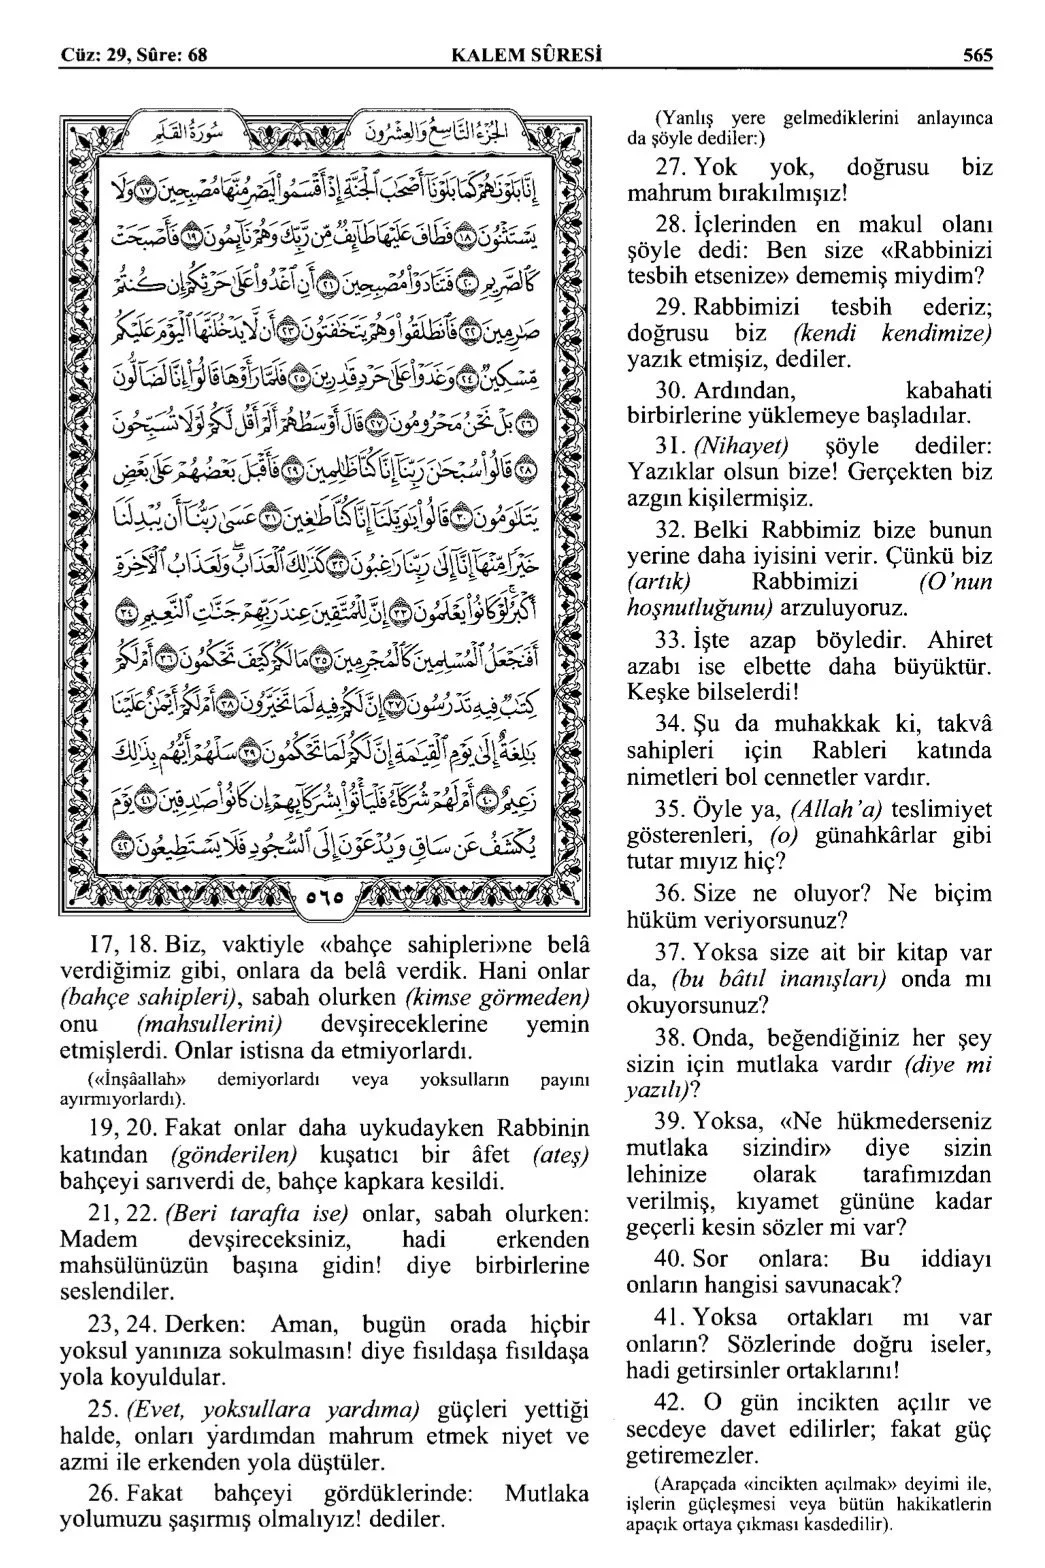 Cüz: 29, Sûre: 68
KALEM SÛRESİ
565
سُورَةُ الْقَلَمِ
الْجُزْءُ التَّاسِعُ وَالْعِشْرُونَ
اِنَّا بَلَوْنٰهُمْ كَمَا بَلَوْنَٓا اَصْحٰبَ الْجَنَّةِ اِذْ اَقْسَمُوا لَيَصْرِمُنَّهَا مُصْبِحِينَ ﴿١٧﴾ وَلَا
يَسْتَثْنُونَ ﴿١٨﴾ فَطَافَ عَلَيْهَا طَٓائِفٌ مِنْ رَبِّكَ وَهُمْ نَٓائِمُونَ ﴿١٩﴾ فَاَصْبَحَتْ
كَالصَّرِيمِ ﴿٢٠﴾ فَتَنَادَوْا مُصْبِحِينَ ﴿٢١﴾ اَنِ اغْدُوا عَلٰى حَرْثِكُمْ اِنْ كُنْتُمْ
صٰرِمِينَ ﴿٢٢﴾ فَانْطَلَقُوا وَهُمْ يَتَخَافَتُونَ ﴿٢٣﴾ اَنْ لَا يَدْخُلَنَّهَا الْيَوْمَ عَلَيْكُمْ
مِسْكِينٌ ﴿٢٤﴾ وَغَدَوْا عَلٰى حَرْدٍ قٰدِرِينَ ﴿٢٥﴾ فَلَمَّا رَاَوْهَا قَالُٓوا اِنَّا لَضَٓالُّونَ
﴿٢٦﴾ بَلْ نَحْنُ مَحْرُومُونَ ﴿٢٧﴾ قَالَ اَوْسَطُهُمْ اَلَمْ اَقُلْ لَكُمْ لَوْلَا تُسَبِّحُونَ
﴿٢٨﴾ قَالُوا سُبْحٰنَ رَبِّنَٓا اِنَّا كُنَّا ظٰلِمِينَ ﴿٢٩﴾ فَاَقْبَلَ بَعْضُهُمْ عَلٰى بَعْضٍ
يَتَلَاوَمُونَ ﴿٣٠﴾ قَالُوا يَا وَيْلَنَٓا اِنَّا كُنَّا طٰغِينَ ﴿٣١﴾ عَسٰى رَبُّنَٓا اَنْ يُبْدِلَنَا
خَيْرًا مِنْهَٓا اِنَّٓا اِلٰى رَبِّنَا رٰغِبُونَ ﴿٣٢﴾ كَذٰلِكَ الْعَذَابُ وَلَعَذَابُ الْاٰخِرَةِ
اَكْبَرُ لَوْ كَانُوا يَعْلَمُونَ ﴿٣٣﴾ اِنَّ لِلْمُتَّقِينَ عِنْدَ رَبِّهِمْ جَنّٰتِ النَّعِيمِ ﴿٣٤﴾
اَفَنَجْعَلُ الْمُسْلِمِينَ كَالْمُجْرِمِينَ ﴿٣٥﴾ مَا لَكُمْ كَيْفَ تَحْكُمُونَ ﴿٣٦﴾ اَمْ لَكُمْ
كِتٰبٌ فِيهِ تَدْرُسُونَ ﴿٣٧﴾ اِنَّ لَكُمْ فِيهِ لَمَا تَخَيَّرُونَ ﴿٣٨﴾ اَمْ لَكُمْ اَيْمٰنٌ عَلَيْنَا
بٰلِغَةٌ اِلٰى يَوْمِ الْقِيٰمَةِ اِنَّ لَكُمْ لَمَا تَحْكُمُونَ ﴿٣٩﴾ سَلْهُمْ اَيُّهُمْ بِذٰلِكَ
زَعِيمٌ ﴿٤٠﴾ اَمْ لَهُمْ شُرَكَٓاءُ فَلْيَأْتُوا بِشُرَكَٓائِهِمْ اِنْ كَانُوا صٰدِقِينَ ﴿٤١﴾ يَوْمَ
يُكْشَفُ عَنْ سَاقٍ وَيُدْعَوْنَ اِلَى السُّجُودِ فَلَا يَسْتَطِيعُونَ ﴿٤٢﴾
٥٦٥
17, 18. Biz, vaktiyle «bahçe sahipleri»ne belâ
verdiğimiz gibi, onlara da belâ verdik. Hani onlar
(bahçe sahipleri), sabah olurken (kimse görmeden)
onu (mahsullerini) devşireceklerine yemin
etmişlerdi. Onlar istisna da etmiyorlardı.
(«İnşâallah» demiyorlardı veya yoksulların payını
ayırmıyorlardı).
19, 20. Fakat onlar daha uykudayken Rabbinin
katından (gönderilen) kuşatıcı bir âfet (ateş)
bahçeyi sarıverdi de, bahçe kapkara kesildi.
21, 22. (Beri tarafta ise) onlar, sabah olurken:
Madem devşireceksiniz, hadi erkenden
mahsülünüzün başına gidin! diye birbirlerine
seslendiler.
23, 24. Derken: Aman, bugün orada hiçbir
yoksul yanınıza sokulmasın! diye fısıldaşa fısıldaşa
yola koyuldular.
25. (Evet, yoksullara yardıma) güçleri yettiği
halde, onları yardımdan mahrum etmek niyet ve
azmi ile erkenden yola düştüler.
26. Fakat bahçeyi gördüklerinde: Mutlaka
yolumuzu şaşırmış olmalıyız! dediler.
(Yanlış yere gelmediklerini anlayınca
da şöyle dediler:)
27. Yok yok, doğrusu biz
mahrum bırakılmışız!
28. İçlerinden en makul olanı
şöyle dedi: Ben size «Rabbinizi
tesbih etsenize» dememiş miydim?
29. Rabbimizi tesbih ederiz;
doğrusu biz (kendi kendimize)
yazık etmişiz, dediler.
30. Ardından, kabahati
birbirlerine yüklemeye başladılar.
31. (Nihayet) şöyle dediler:
Yazıklar olsun bize! Gerçekten biz
azgın kişilermişiz.
32. Belki Rabbimiz bize bunun
yerine daha iyisini verir. Çünkü biz
(artık) Rabbimizi (O'nun
hoşnutluğunu) arzuluyoruz.
33. İşte azap böyledir. Ahiret
azabı ise elbette daha büyüktür.
Keşke bilselerdi!
34. Şu da muhakkak ki, takvâ
sahipleri için Rableri katında
nimetleri bol cennetler vardır.
35. Öyle ya, (Allah'a) teslimiyet
gösterenleri, (o) günahkârlar gibi
tutar mıyız hiç?
36. Size ne oluyor? Ne biçim
hüküm veriyorsunuz?
37. Yoksa size ait bir kitap var
da, (bu bâtıl inanışları) onda mı
okuyorsunuz?
38. Onda, beğendiğiniz her şey
sizin için mutlaka vardır (diye mi
yazılı)?
39. Yoksa, «Ne hükmederseniz
mutlaka sizindir» diye sizin
lehinize olarak tarafımızdan
verilmiş, kıyamet gününe kadar
geçerli kesin sözler mi var?
40. Sor onlara: Bu iddiayı
onların hangisi savunacak?
41. Yoksa ortakları mı var
onların? Sözlerinde doğru iseler,
hadi getirsinler ortaklarını!
42. O gün incikten açılır ve
secdeye davet edilirler; fakat güç
getiremezler.
(Arapçada «incikten açılmak» deyimi ile,
işlerin güçleşmesi veya bütün hakikatlerin
apaçık ortaya çıkması kasdedilir).